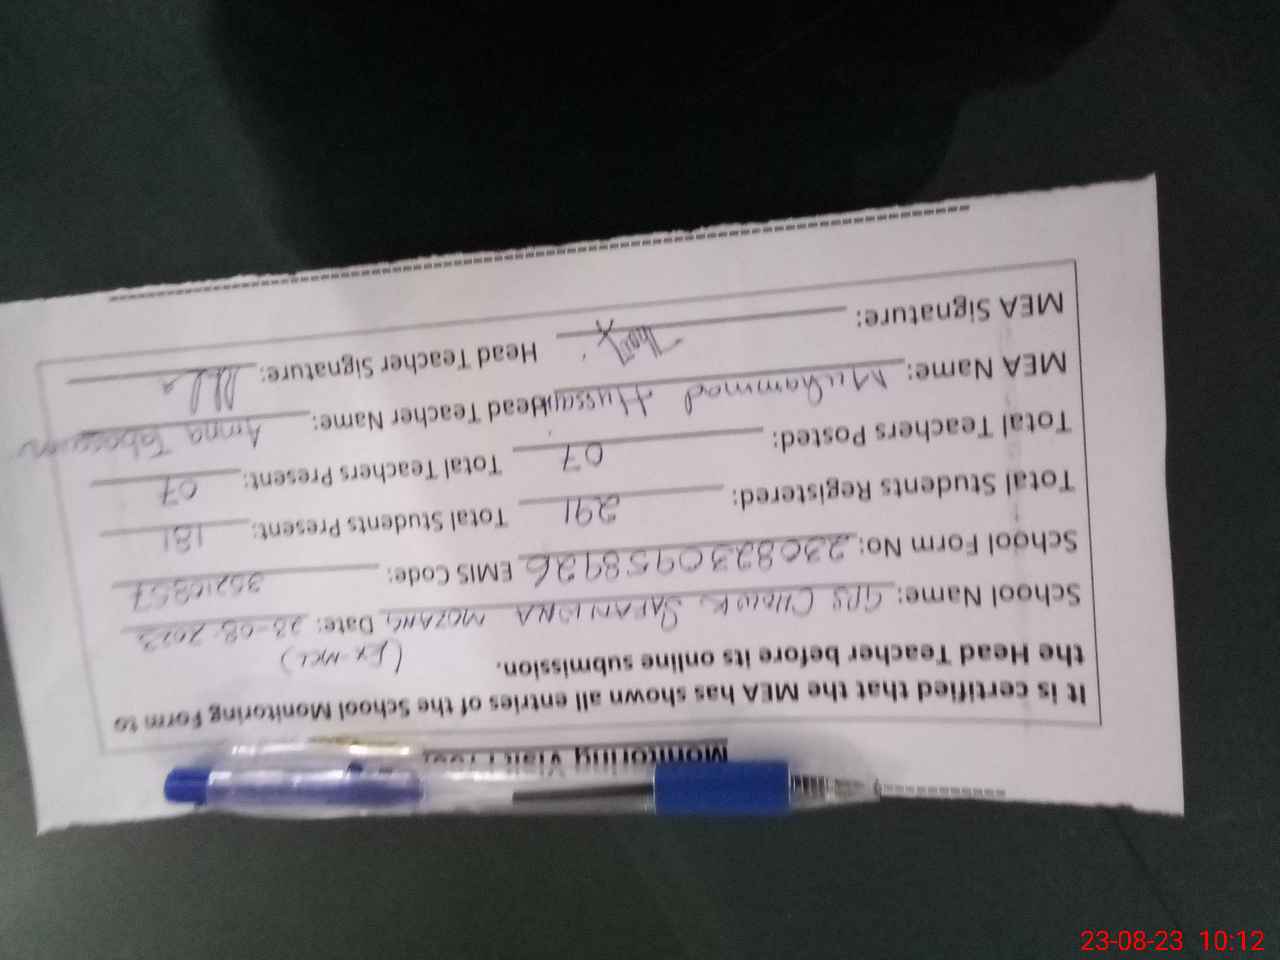 Monitoring Visit
It is certified that the MEA has shown all entries of the School Monitoring Form to
the Head Teacher before its online submission. (EX-MCL)
School Name: GPS CHOWK SAFANWALA MOZANG Date: 23-08-2023
School Form No: 2308230958926 EMIS Code: 35210857
Total Students Registered: 291 Total Students Present: 181
Total Teachers Posted: 07 Total Teachers Present: 07
MEA Name: Muhammad Hussain Head Teacher Name: Amna Tabassum
MEA Signature: Head Teacher Signature:
23-08-23 10:12